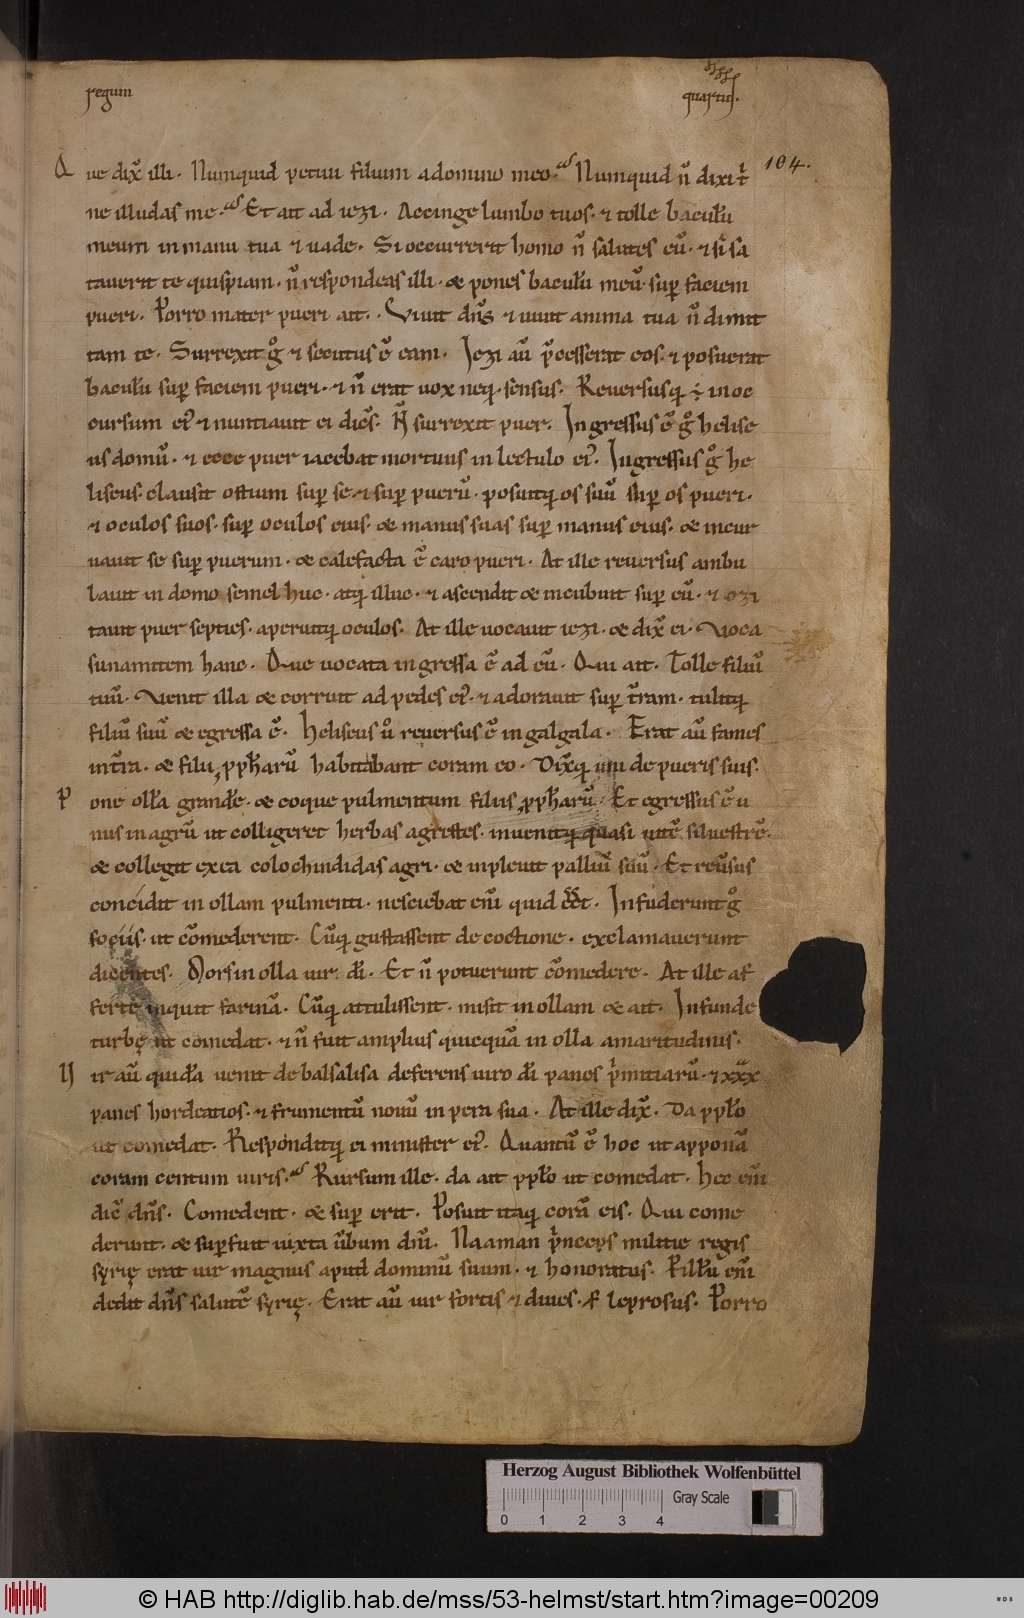 regum
quartus.
104.
Que dix̄ illi. Numquid petiui filium a domino meo. Numquid n̄ dixi t̄
ne illudas me. Et ait ad iezi. Accinge lumbo tuos. & tolle baculū
meum in manu tua & uade. Si occurrerit homo n̄ salutes eū. & si sa
tauerit te quispiam. n̄ respondeas illi. & pones baculū meū sup̄ faciem
pueri. Porro mater pueri ait. Viuit dn̄s & uiuit anima tua n̄ dimit
tam te. Surrexit gͦ & secutus ē eam. Iezi aū p̄cesserat eos. & posuerat
baculū sup̄ faciem pueri. & n̄ erat uox neq; sensus. Reuersusq; ÷ in oc
cursum ei᾽ & nuntiauit ei dicēs. N̄ surrexit puer. Ingressus ē gͦ helise
us domū. & ecce puer iacebat mortuus in lectulo ei᾽. Ingressus gͦ he
liseus. clausit ostium sup̄ se & sup̄ puerū. posuitq; os suū sup̄ os pueri.
& oculos suos. sup̄ oculos eius. & manus suas sup̄ manus eius. & incur
uauit se sup̄ puerum. & calefacta ē caro pueri. At ille reuersus ambu
lauit in domo semel huc. atq; illuc. & ascendit & incubuit sup̄ eū. & ozi
tauit puer septies. aperuitq; oculos. At ille uocauit iezi. & dix̄ ei. Voca
sunamitem hanc. Que uocata ingressa ē ad eū. Qui ait. Tolle filiū
tuū. Venit illa & corruit ad pedes ei᾽. & adorauit sup̄ t̄ram. tulitq;
filiū suū & egressa ē. Heliseus u̇ͦ reuersus ē in galgala. Erat aū fames
in t̄ra. & filii ppharū habitabant coram eo. Dixq; uni de pueris suis.
Pone ollā grandē. & coque pulmentum filiis ppharū. Et egressus ē u
nus in agrū ut colligeret herbas agrestes. inuenitq; quasi uitē siluestrē.
& collegit ex ea colochindidas agri. & inpleuit palliū suū. Et reu̅sus
concidit in ollam pulmenti. nesciebat eni̅ quid ēēt. Infuderunt gͦ
sociis. ut cōmederent. Cūq; gustassent de coctione. exclamauerunt
dicentes. Mors in olla uir dī. Et n̄ potuerunt cōmedere. At ille af
ferte inquit farinā. Cūq; attulissent. misit in ollam & ait. Infunde
turbę ut comedat. & n̄ fuit amplius quicquā in olla amaritudinis.
Uir aū quidā uenit de balsalisa deferens uiro dī panes p̄mitiarū. & xx
panes hordeatios. & frumentū nouū in pera sua. At ille dix̄. Da pplo
ut comedat. Responditq; ei minister ei᾽. Quantū ē hoc ut apponā
coram centum uiris. Rursum ille. da ait pplo ut comedat. Hec eni̅
dic̄ dn̄s. Comedent. & sup̄ erit. Posuit itaq; corā eis. Qui come
derunt. & sup̄fuit iuxta ūbum dni̅. Naaman p̄nceps militie regis
syrię erat uir magnus apud dominū suum. & honoratus. P illū eni̅
dedit dn̄s salutē syrię. Erat aū uir fortis & diues. s; leprosus. Porro
Herzog August Bibliothek Wolfenbüttel
Gray Scale
0 1 2 3 4
© HAB http://diglib.hab.de/mss/53-helmst/start.htm?image=00209